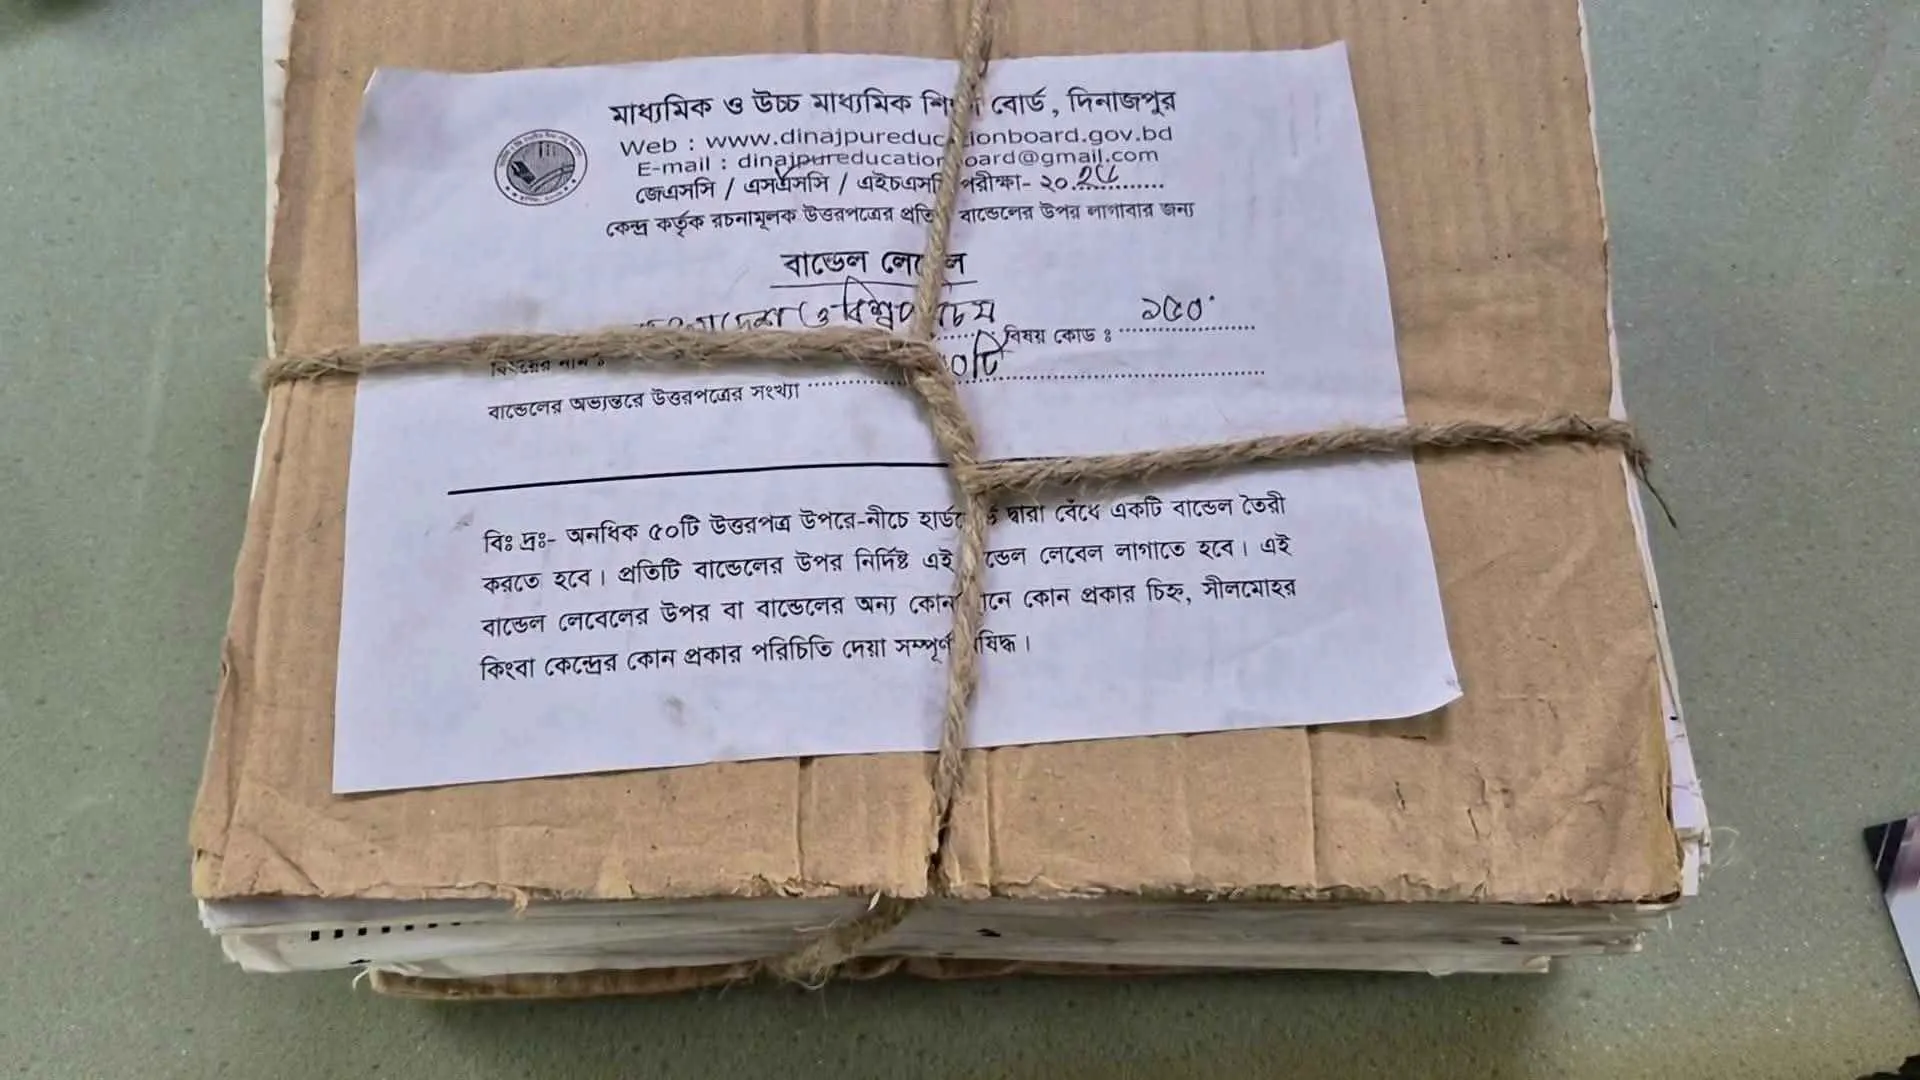 মাধ্যমিক ও উচ্চ মাধ্যমিক শিক্ষা বোর্ড, দিনাজপুর
Web : www.dinajpureducationboard.gov.bd
E-mail : dinajpureducationboard@gmail.com
জেএসসি / এসএসসি / এইচএসসি পরীক্ষা- ২০
কেন্দ্র কর্তৃক রচনামূলক উত্তরপত্রের প্রতিটি বান্ডেলের উপর লাগাবার জন্য
বান্ডেল লেবেল
বিষয়ের নাম : বাংলাদেশ ও বিশ্বপরিচয় বিষয় কোড ঃ ১৫০
বান্ডেলের অভ্যন্তরে উত্তরপত্রের সংখ্যা
বিঃ দ্রঃ- অনধিক ৫০টি উত্তরপত্র উপরে-নীচে হার্ডবোর্ড দ্বারা বেঁধে একটি বান্ডেল তৈরী
করতে হবে। প্রতিটি বান্ডেলের উপর নির্দিষ্ট এই বান্ডেল লেবেল লাগাতে হবে। এই
বান্ডেল লেবেলের উপর বা বান্ডেলের অন্য কোনখানে কোন প্রকার চিহ্ন, সীলমোহর
কিংবা কেন্দ্রের কোন প্রকার পরিচিতি দেয়া সম্পূর্ণ নিষিদ্ধ।